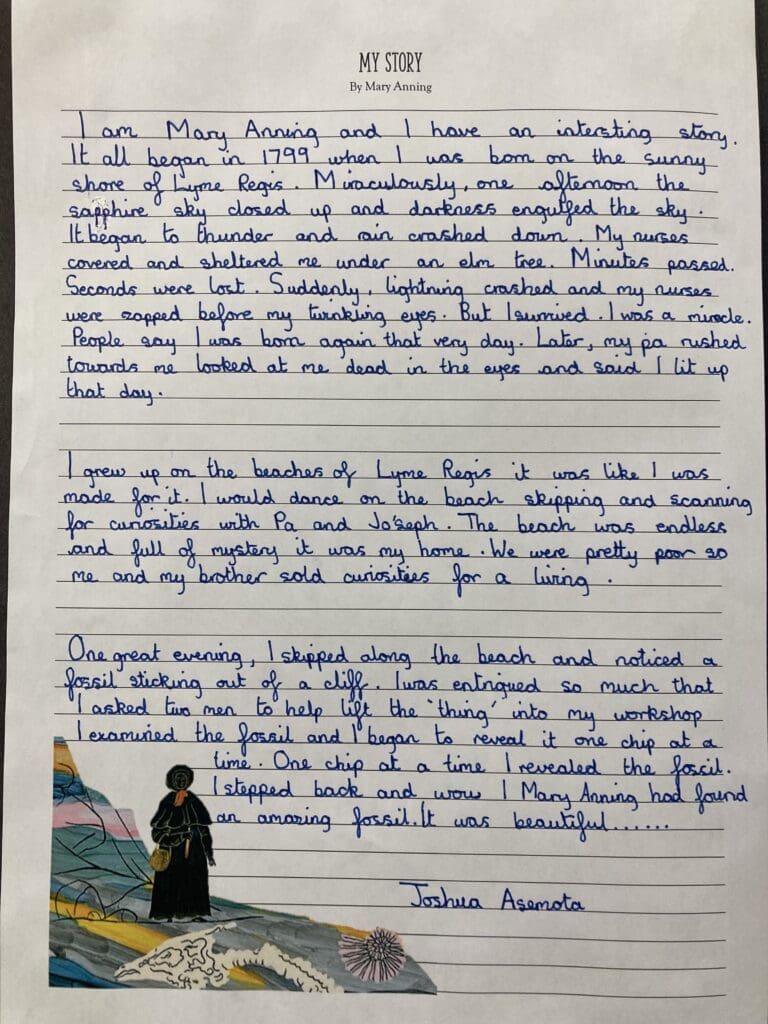 MY STORY
By Mary Anning
I am Mary Anning and I have an intersting story.
It all began in 1799 when I was born on the sunny
shore of Lyme Regis. Miraculously, one afternoon the
sapphire sky closed up and darkness engulfed the sky.
It began to thunder and rain crashed down. My nurses
covered and sheltered me under an elm tree. Minutes passed.
Seconds were lost. Suddenly, lightning crashed and my nurses
were zapped before my twinkling eyes. But I survived. I was a miracle.
People say I was born again that very day. Later, my pa rushed
towards me looked at me dead in the eyes and said I lit up
that day.
I grew up on the beaches of Lyme Regis it was like I was
made for it. I would dance on the beach skipping and scanning
for curiosities with Pa and Joseph. The beach was endless
and full of mystery it was my home. We were pretty poor so
me and my brother sold curiosities for a living.
One great evening, I skipped along the beach and noticed a
fossil sticking out of a cliff. I was entrigued so much that
I asked two men to help lift the 'thing' into my workshop
I examined the fossil and I began to reveal it one chip at a
time. One chip at a time I revealed the fossil.
I stepped back and wow I Mary Anning had found
an amazing fossil. It was beautiful......
Joshua Asemota